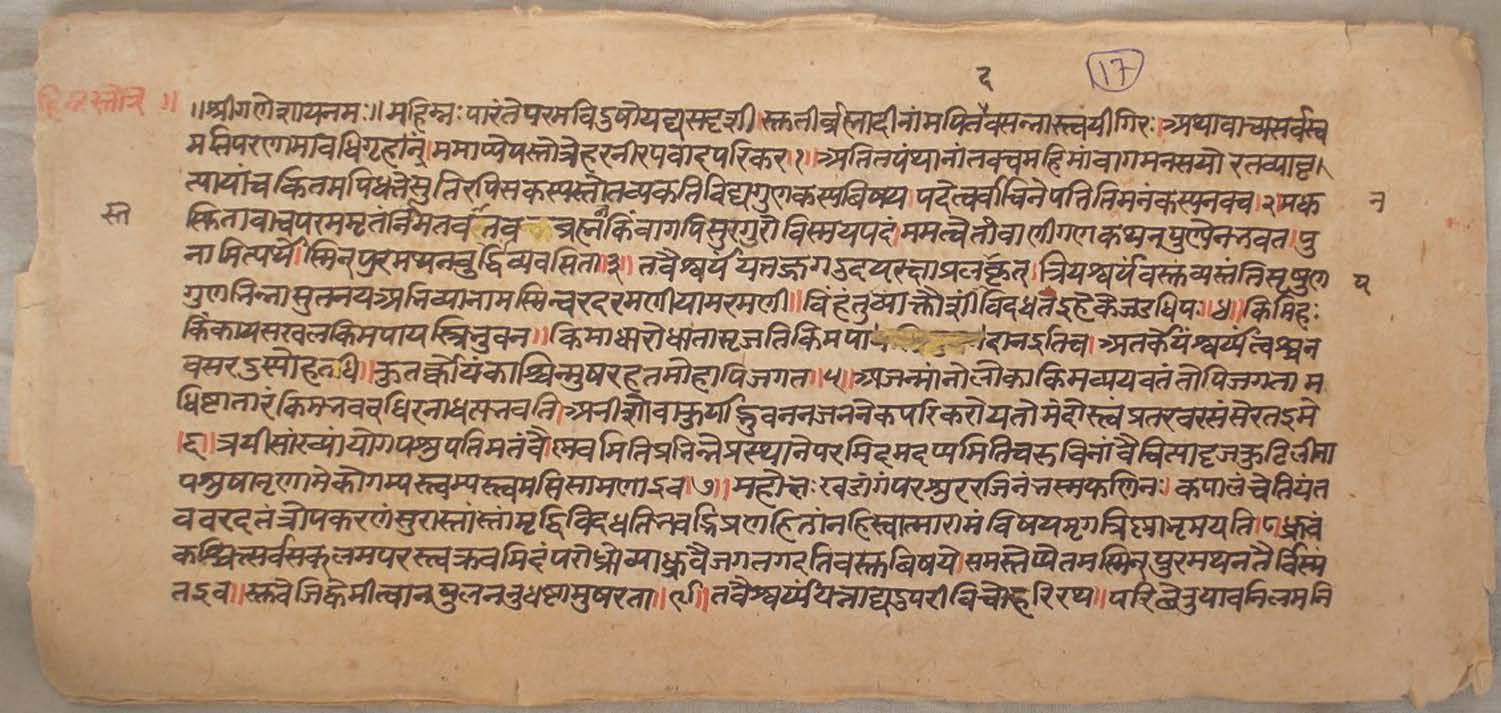 द
17
हिम्नस्तोत्रे ॥
॥श्रीगणेशायनमः॥ महिम्नः पारंतेपरमविदुषोयद्यसदृशी स्तुतीर्ब्रह्मादीनांमपितवसन्नास्त्वयीगिरः।अथावाच्यसर्वस्व
मतिपरणामावधिगृहांन्।ममाप्येषस्तोत्रेहरनीरपवादपरिकर१।अतितपंथानांतवचमहिमांवागमनसयोरतव्यावृ।
त्यायांचकितमपिधत्तेसुतिरपिसकस्यस्तोतव्यकतिविद्यगुणकस्यबिषय।पदेत्वर्वाचिनेपतितिमनंकस्यनवच।२।मधु
स्त
स्फितावाचपरममृतंनिमतवर्तव ब्रह्मनंकिंवागपिसुरगुरोविस्मयपदं।ममत्वैतांवाणीगणकथनपुण्येनभवत।पु
न
नामित्यर्थेस्मिनपुरमथनबुर्द्धिव्यवसिता।३।तवैश्वर्ययतज्जगदुदयरक्षाप्रलयकृत।त्रियश्वर्यंवस्तंव्यस्तंतिसृषुण
ष
गुणभिन्नासुतनयअभिव्यानामस्मिन्वरदरमणीयामरमणी॥विहंतुंव्याक्रौशींविदधतइहैकेजडधिय।४।किमिहः
किंकायसखलकिमपायस्त्रिभुवन॥किमाधारोधातासृजतिकिमपा दानइतिच।अतर्केयंश्वर्य्यत्वय्यन
वसरऽस्योहतधी।कुतर्क्कोयंकाश्चिन्मुषरहतमोहापिजगत।५।अाजन्मांनोलोकाकिमव्ययवतंतोपिजगता म
धिष्टातारंकिमभवबधिरनाधत्तभवति।अनीशोवाकुर्याद्भुवनजननेकपरिकरोयतोमंदोस्त्वंप्रतरवरसंसेरतइमे
।६।त्रयीसांख्यांयोगपशुपतिमतंवैष्णवमितिप्रभिन्नेप्रस्थानेपरमिदमदप्यमितिचरुचिनांवैचित्रादृजकुटिलीना
पशुषानृणामेकोगम्पस्त्वम्पस्त्वमसिसामणाइव।७।महोक्षःखडांगंपरशुररजिनंभस्मफणिनः।कपालंचेतियंत
ववरदतंत्रोपकरणंसुरास्तांस्तांमृद्धिविदधतिभवद्भिप्रणहितांनहिस्वात्मारामंबिषयमृगत्रिष्णाभ्रमयति।८।ध्रुवं
कश्चित्सर्वसकलमपरस्त्वक्रवमिदंपरोध्रोव्याध्रुवैजगतगदतिवस्तबिषये।समस्तेप्येतमस्मिनपुरमथनतैर्विस्म
तइव॥स्तवैजिह्रेमीत्वानषुलननुधष्टामुषरता॥९॥तवैश्वर्य्ययत्नाद्यउपरीविचोहरिरध॥परिछेतुयावनिलमनि